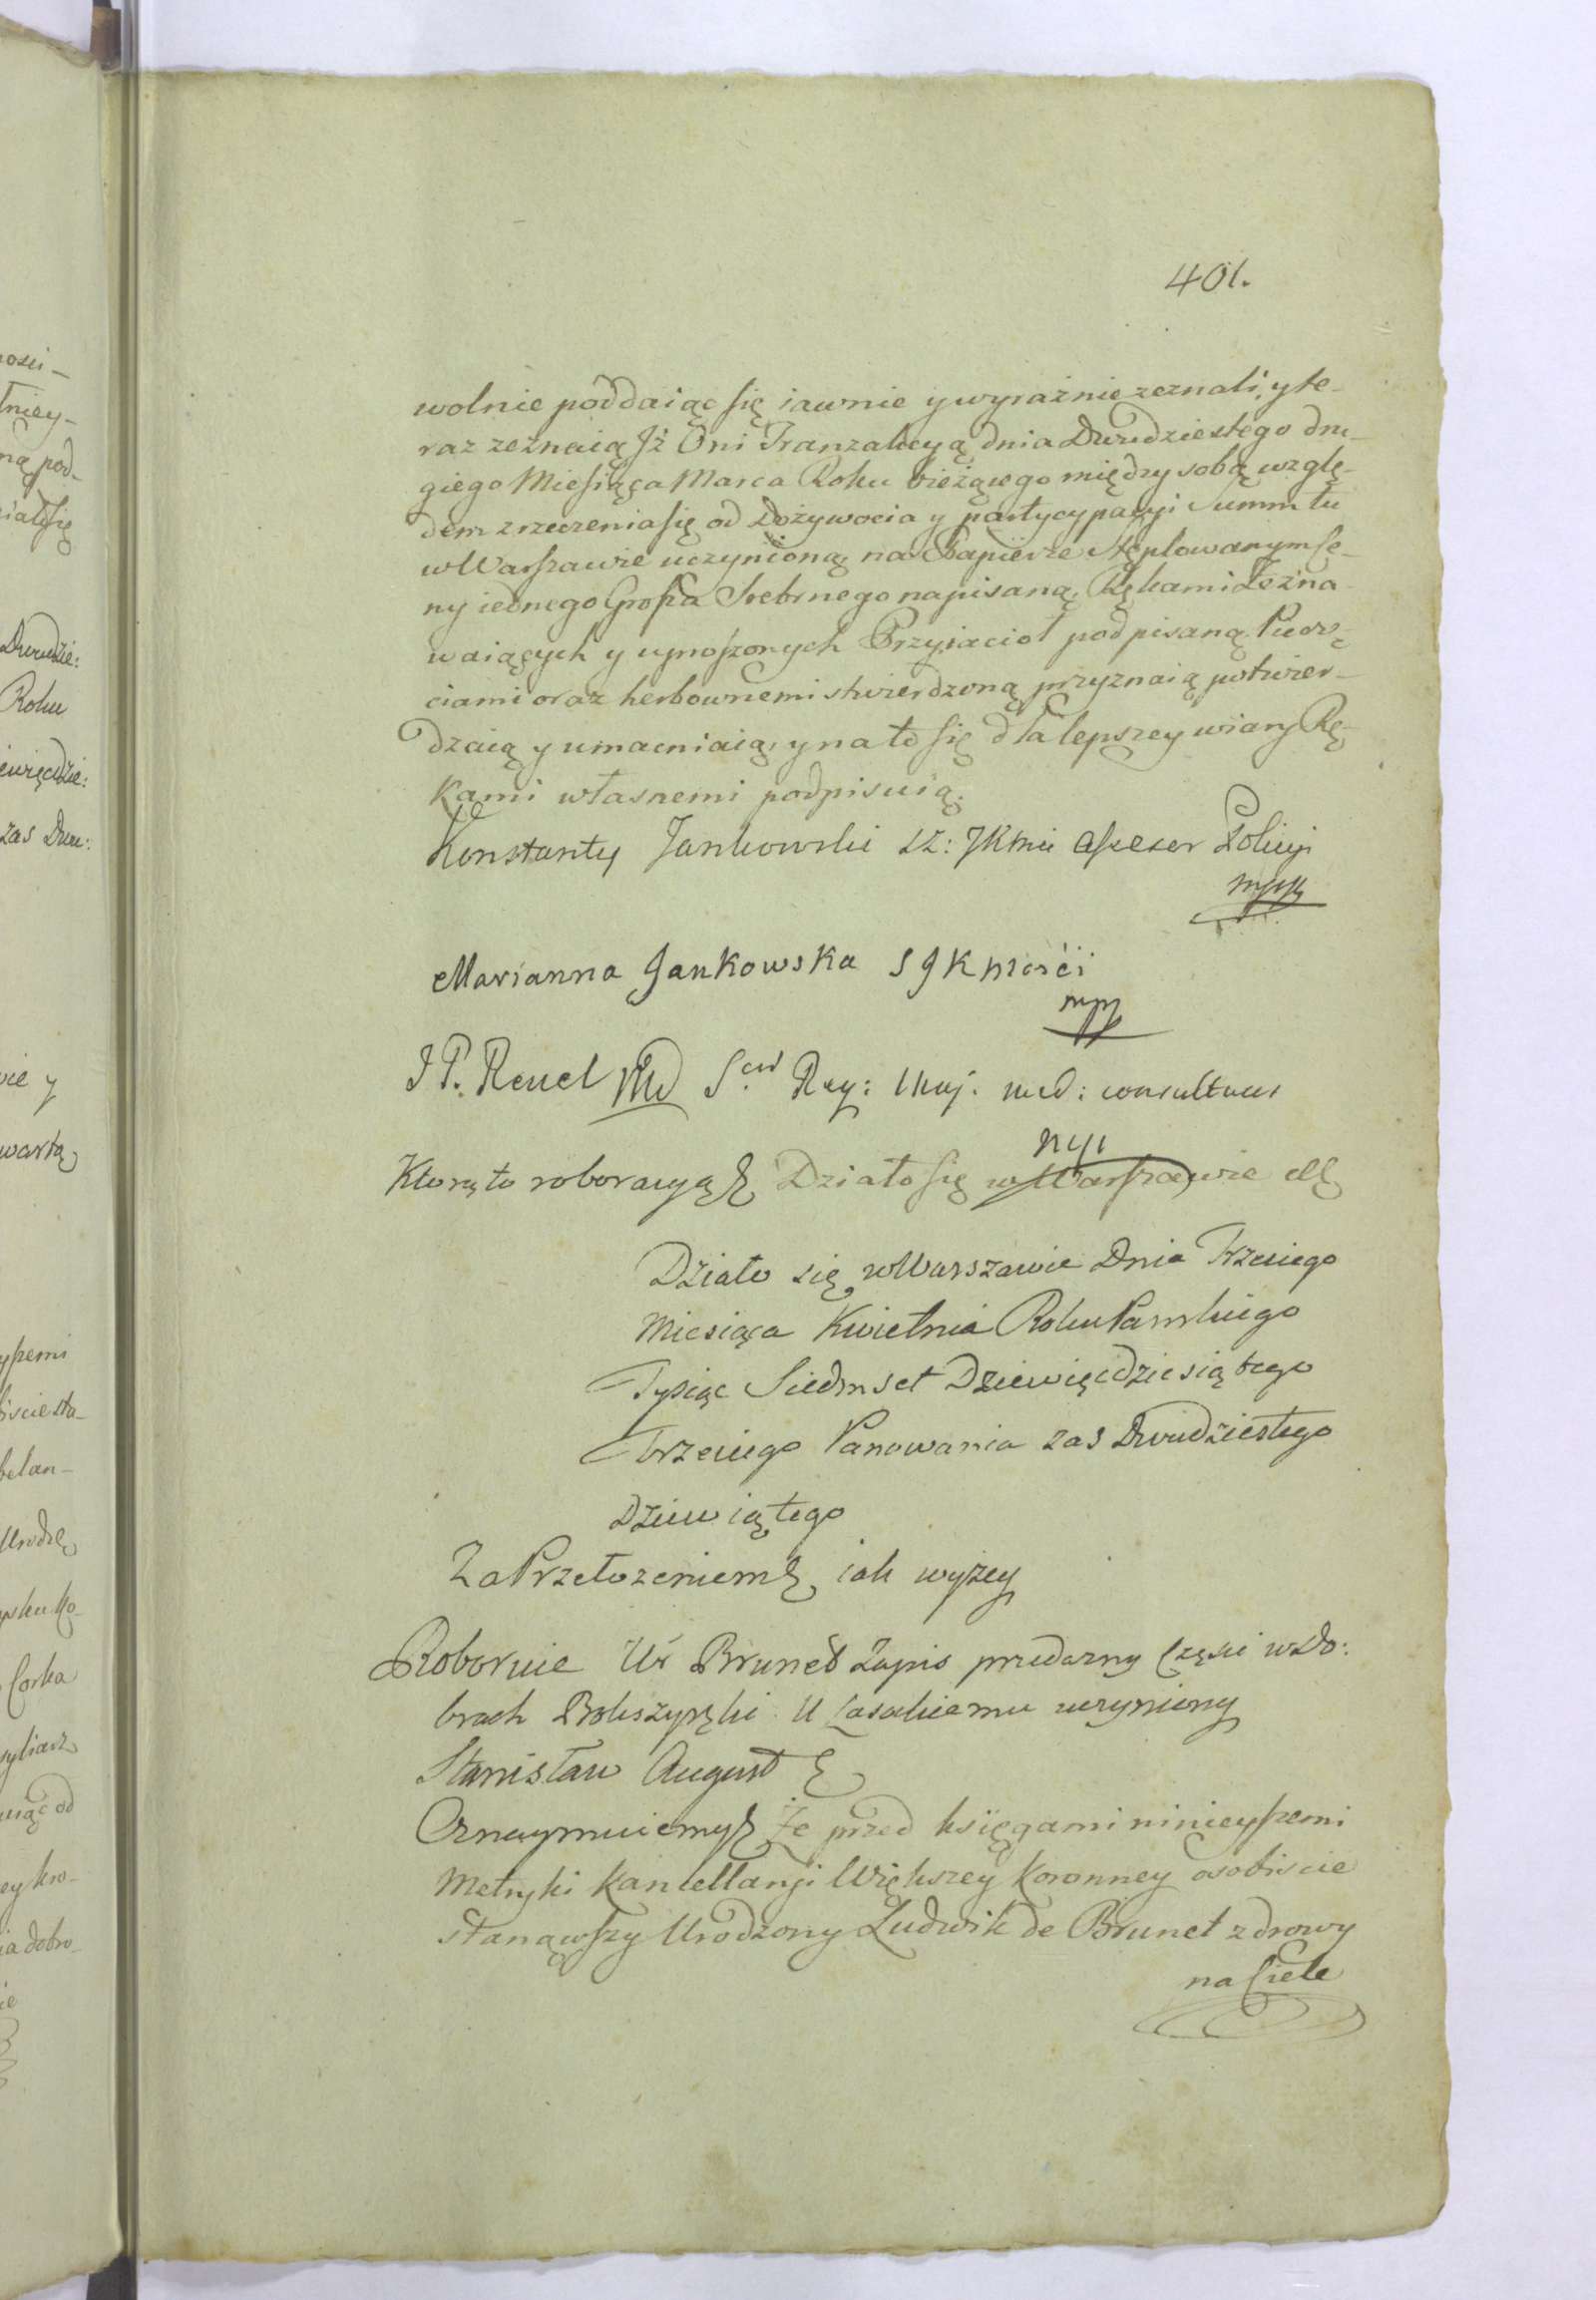 401.
wolnie poddaiąc się iawnie y wyraźnie zeznali, y te-
raz zeznaią Jż Oni Tranzakcyą dnia Dwudziestego dru-
giego Miesiąca Marca Roku bieżącego między sobą wzglę-
dem zrzeczenia się od Dożywocia y partycypacyi Summ tu
w Warszawie uczynioną na Papierze Stęplowanym Ce-
ny iednego Grosza Srebrnego napisaną, Rękami Zezna-
waiących y uproszonych Przyiacioł podpisaną Pieczę-
ciami oraz herbownemi stwierdzoną przyznaią potwier-
dzaią y umacniaią, y na to się dla lepszey wiary Rę-
kami własnemi podpisuią.
Konstanty Jankowski SZ: JKMci Assesor Policyi
mpp
Marianna Jankowska S J K Mości
mpp
J P. Reuel MD Sae Reg: Maj. med: consultus
mp
Ktorą to roboracyą & Działo się w Warszawie &
Działo się w Warszawie Dnia Trzeciego
Miesiąca Kwietnia Roku Pańskiego
Tysiąc Siedmset Dziewięćdziesiątego
Trzeciego Panowania zas Dwudziestego
Dziewiątego
Za Przełożeniem & iak wyżey
Roboruie Ur Brunet Zapis przedarzny Części w Do:
brach Bokszyszki U Casakiemu uczyniony
Stanisław August &
Oznaymuiemy & Że przed księgami ninieyszemi
Metryki Kancellaryi Większey Koronney osobiscie
stanąwszy Urodzony Ludwik de Brunet zdrowy
na Ciele